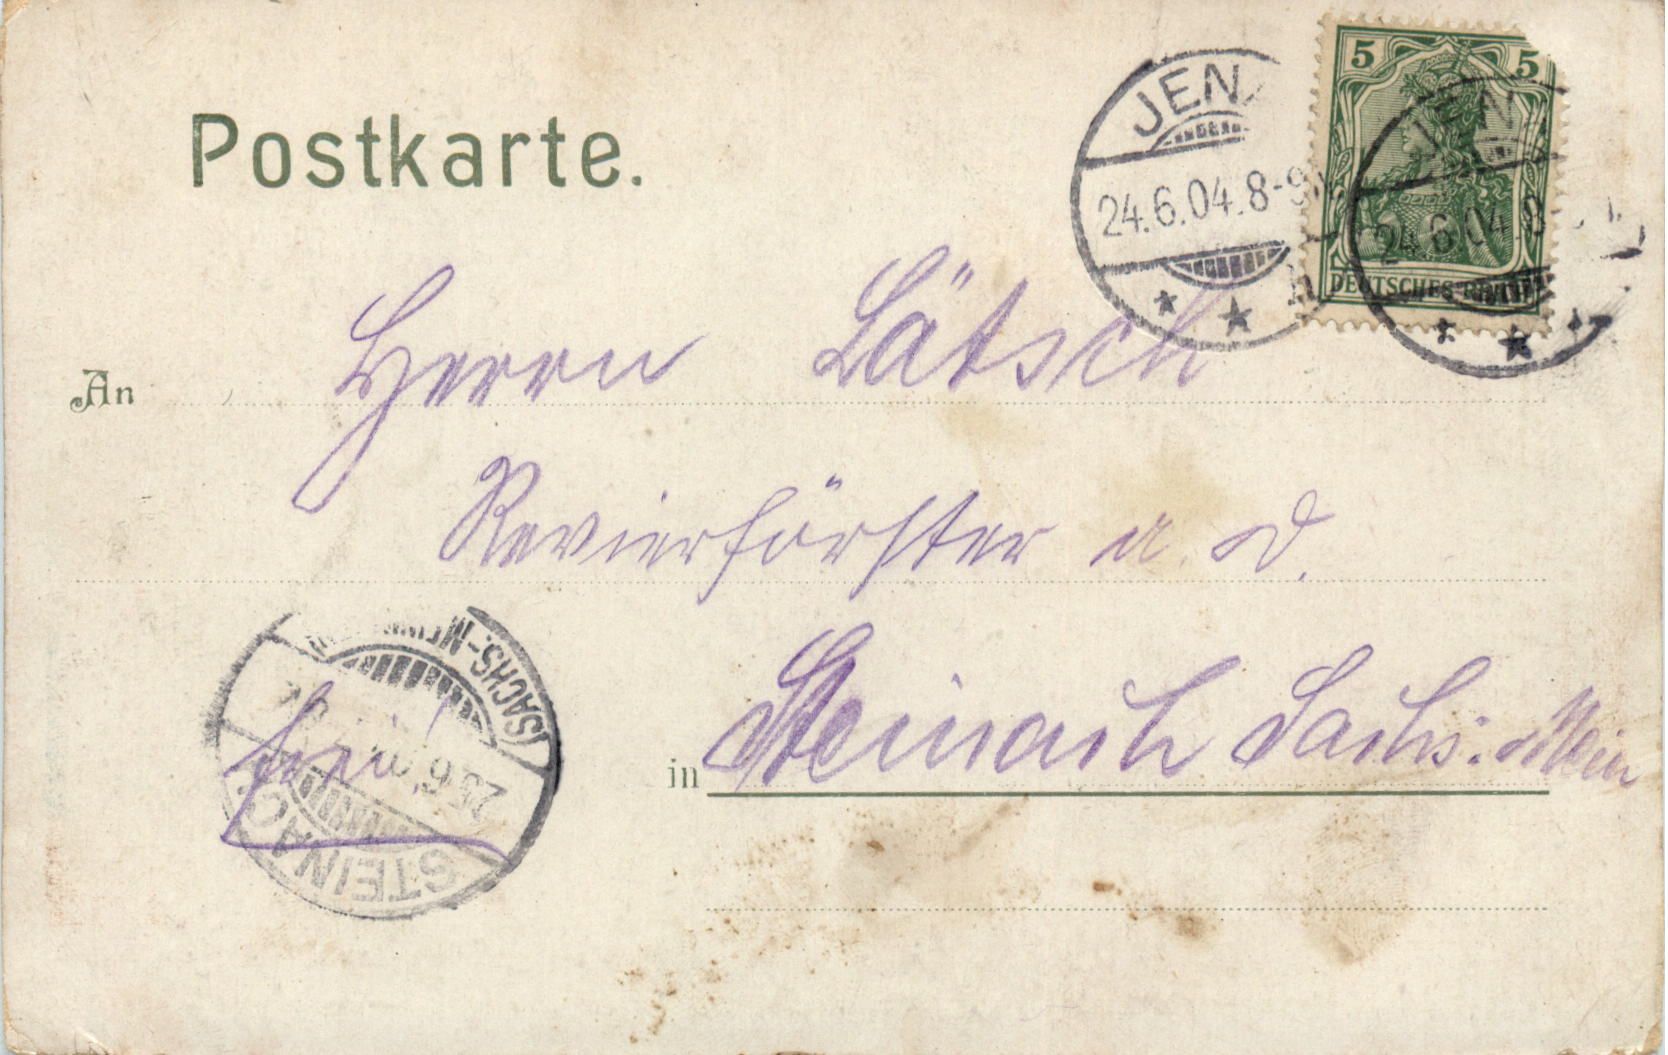 Postkarte.
JENA
24.6.04.8-9
5 5
DEUTSCHES REICH
JENA
24.6.04.8-
An Herrn Lätsch
Revierförster a. D.
in Steinach Sachs. Mein
frei!
STEINACH
(SACHS.-MEIN
25.6.